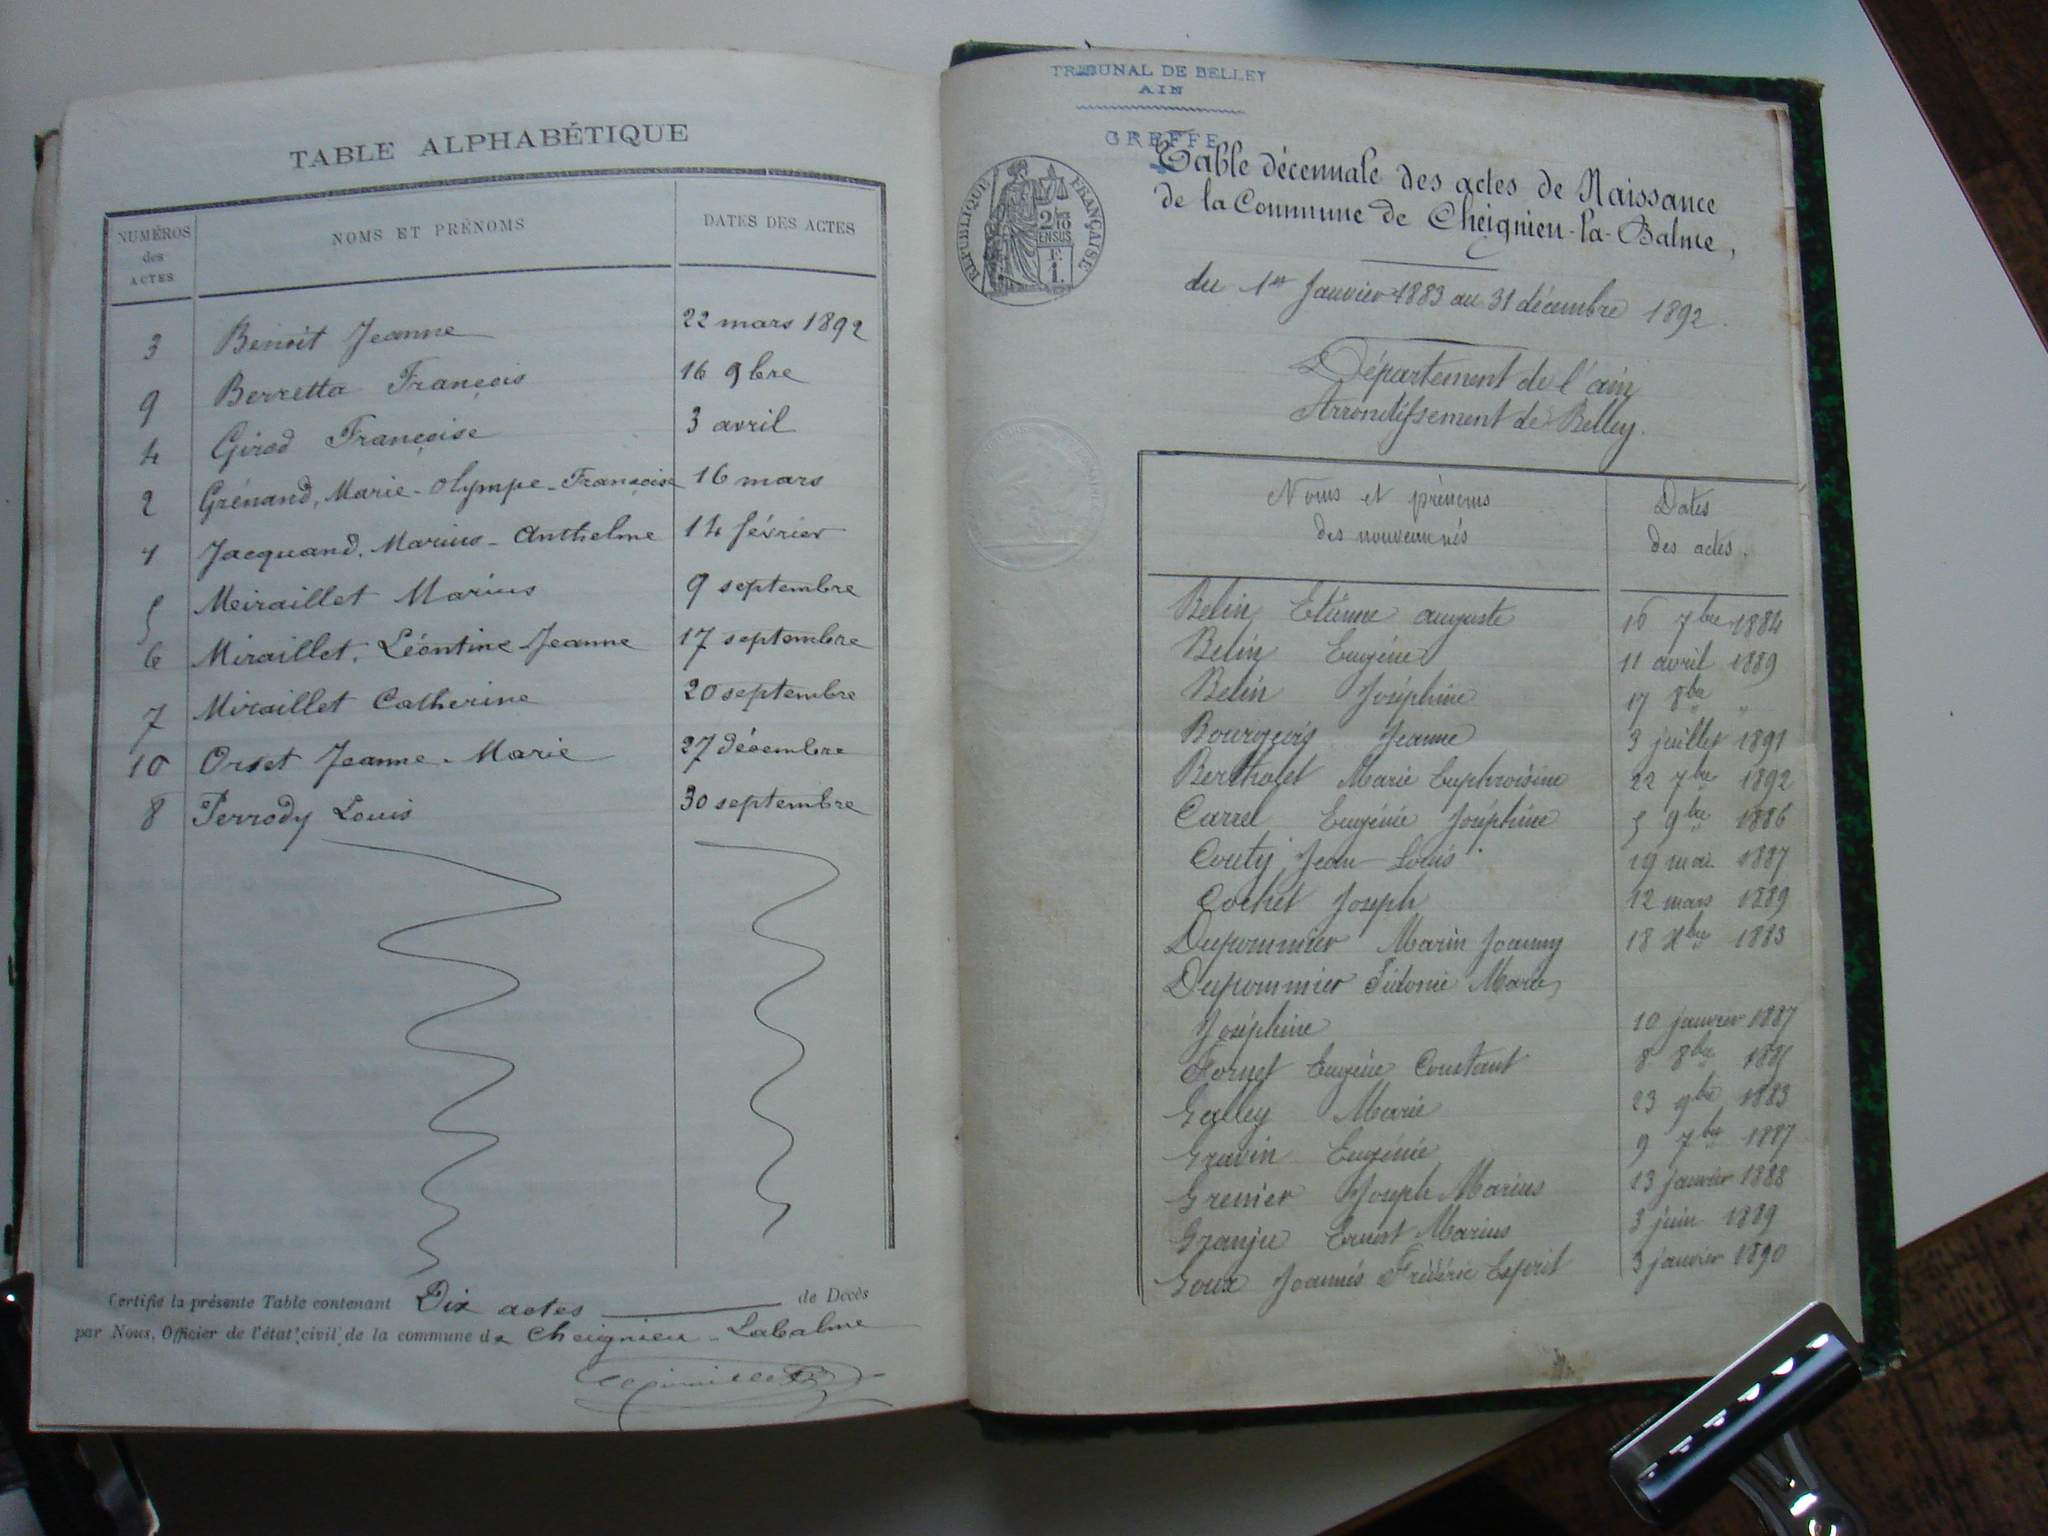 TABLE ALPHABÉTIQUE
NUMÉROS des ACTES NOMS ET PRÉNOMS DATES DES ACTES
3 Benoit Jeanne 22 mars 1892
9 Berretta François 16 9bre
4 Girod Françoise 3 avril
2 Grénand, Marie-Olympe-Françoise 16 mars
1 Jacquand, Marius-Anthelme 14 février
5 Meiraillet Marius 9 septembre
6 Miraillet, Léontine Jeanne 17 septembre
7 Miraillet Catherine 20 septembre
10 Orset Jeanne-Marie 27 décembre
8 Perrody Louis 30 septembre
Certifié la présente Table contenant Dix actes de Décès
par Nous, Officier de l'état civil de la commune de Cheignieu-Labalme
TRIBUNAL DE BELLEY
AIN
GREFFE
RÉPUBLIQUE FRANÇAISE
Table décennale des actes de Naissance
de la Commune de Cheignieu-la-Balme,
du 1er Janvier 1883 au 31 décembre 1892.
Département de l'ain
Arrondissement de Belley.
Noms et prénoms Dates
des nouveau nés des actes.
Belin Etienne auguste 16 7bre 1884
Belin Eugénie 11 avril 1889
Belin Joséphine 17 8bre "
Bourgeois Jeanne 3 juillet 1891
Bertholet Marie Euphroisine 22 7bre 1892
Carrel Eugénie Joséphine 5 9bre 1886
Couty Jean Louis 19 mai 1887
Cochet Joseph 12 mars 1889
Dupommier Marin Joanny 18 Xbre 1883
Dupommier Sidonie Marie
Joséphine 10 janvier 1887
Fornet Eugène Constant 8 8bre
Galley Marie 23 9bre 1883
Gravin Eugénie 9 7bre 1887
Grenier Joseph Marius 13 janvier 1888
Granju Ernest Marius 3 juin 1889
Goux Joannés Frédéric Esprit 3 janvier 1890